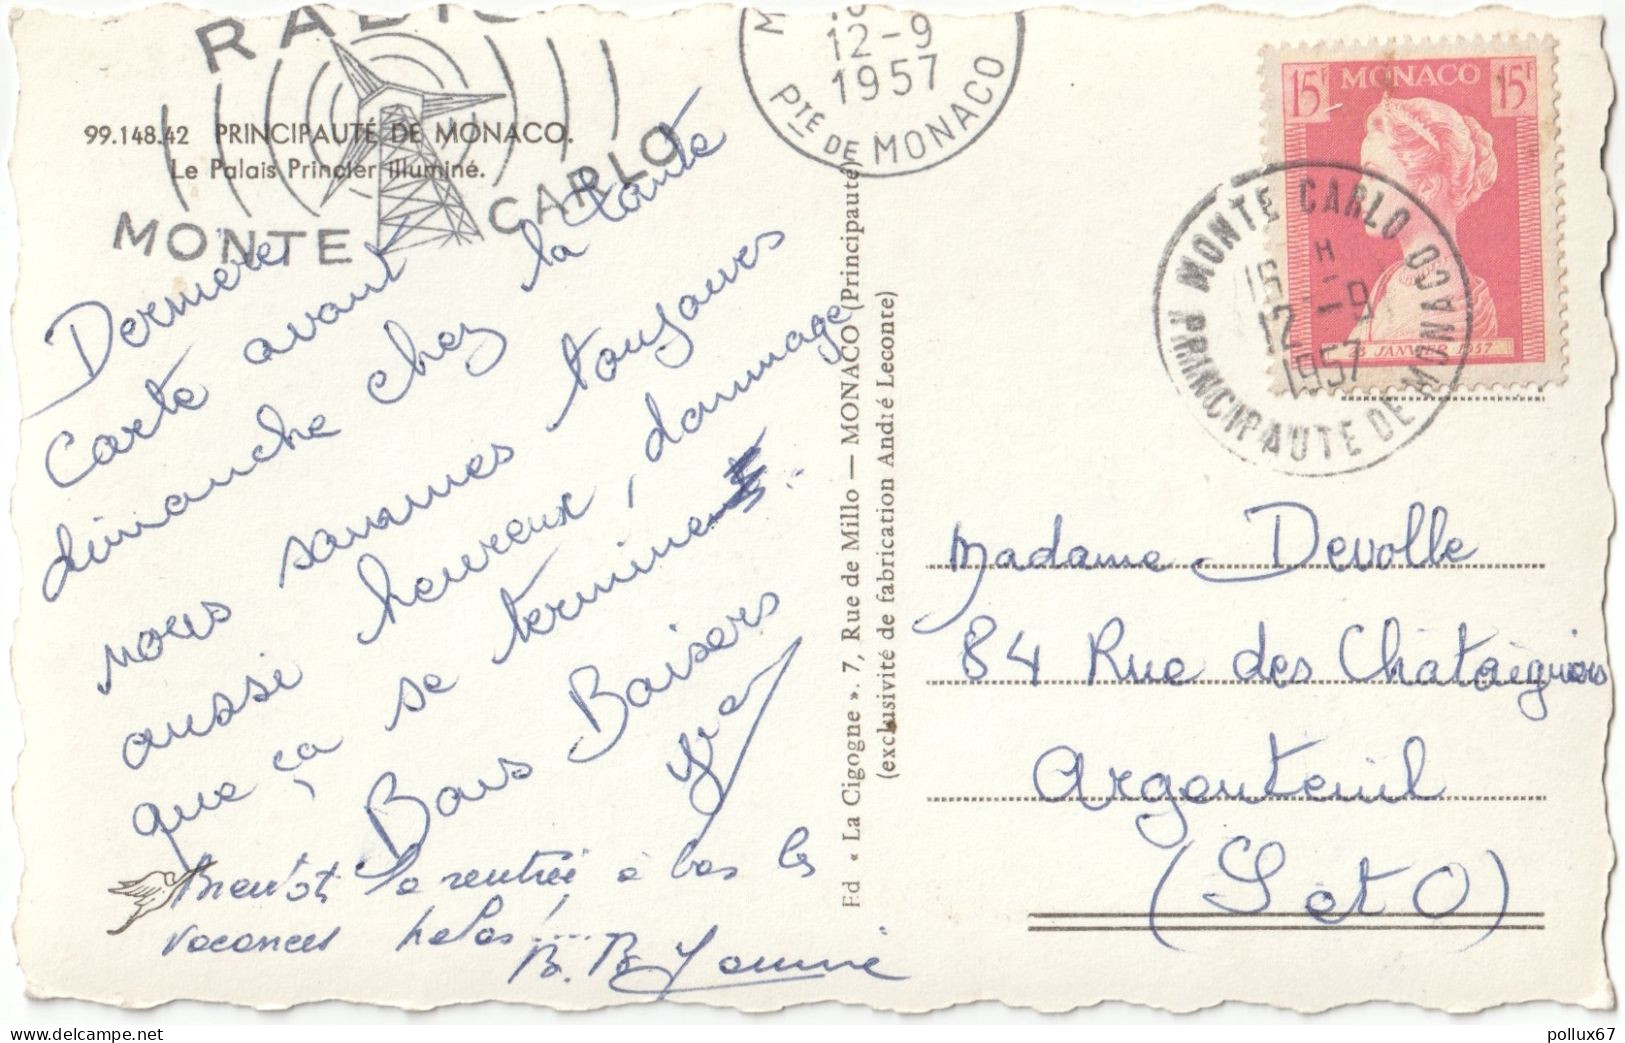 RADIO
MONTE CARLO
12-9
1957
PTÉ DE MONACO
99.148.42 PRINCIPAUTÉ DE MONACO.
Le Palais Princier illuminé.
15F MONACO 15F
JANVIER 1957
MONTE CARLO
H
12 -9
1957
PRINCIPAUTE DE MONACO
Dernière
carte avant
dimanche chez la tante
nous sommes toujours
aussi heureux, dommage
que ça se termine
Bons Baisers
Bientôt la rentrée à bas les
vacances helas!....
B. B.
Ed « La Cigogne ». 7, Rue de Millo — MONACO (Principauté)
(exclusivité de fabrication André Leconte)
Madame Devolle
84 Rue des Chataigniers
Argenteuil
(S et O)
pollux67